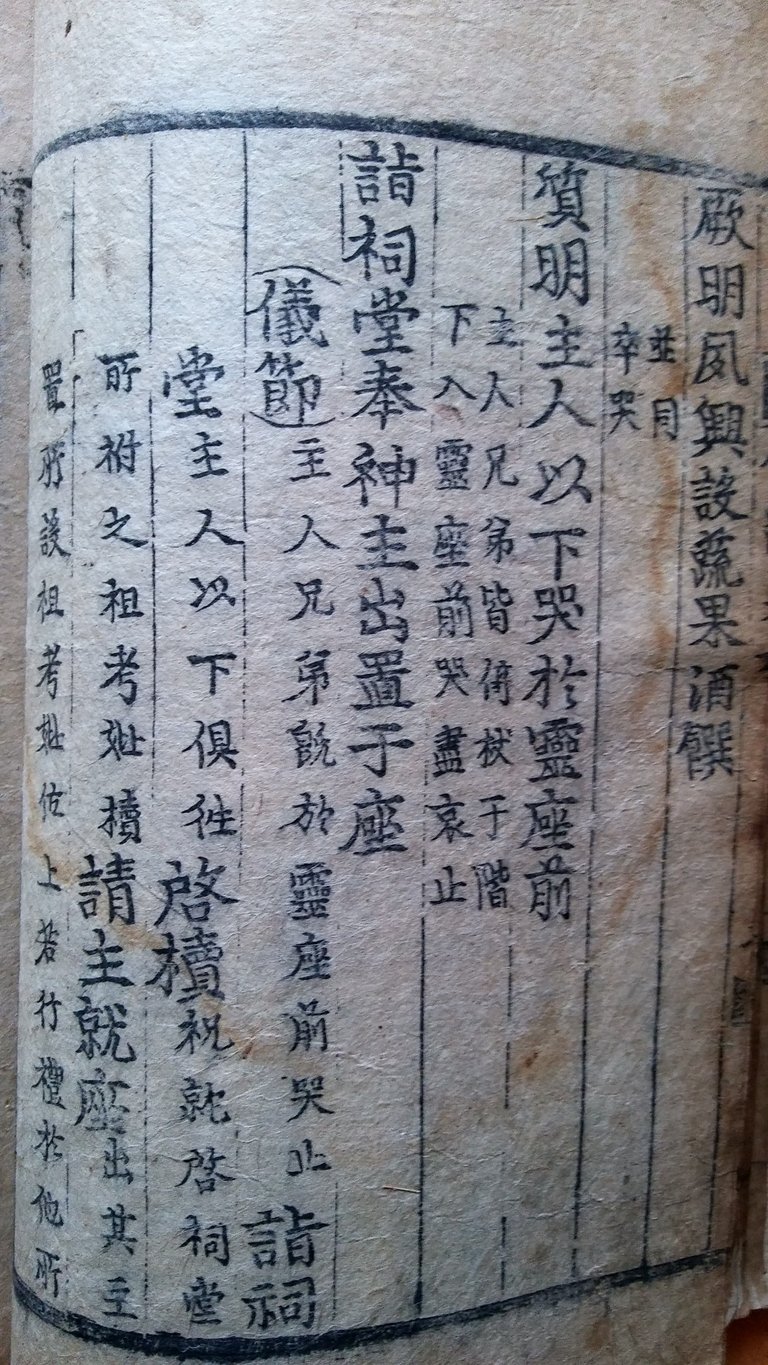 厥明夙興設蔬果酒饌
並同
卒哭
質明主人以下哭於靈座前
主人兄弟皆倚杖于階
下入靈座前哭盡哀止
詣祠堂奉神主出置于座
儀節主人兄弟既於靈座前哭止詣祠
堂主人以下俱徃啓櫝祝就啓祠堂
所祔之祖考妣櫝請主就座出其主
置所設祖考妣位上若行禮於他所